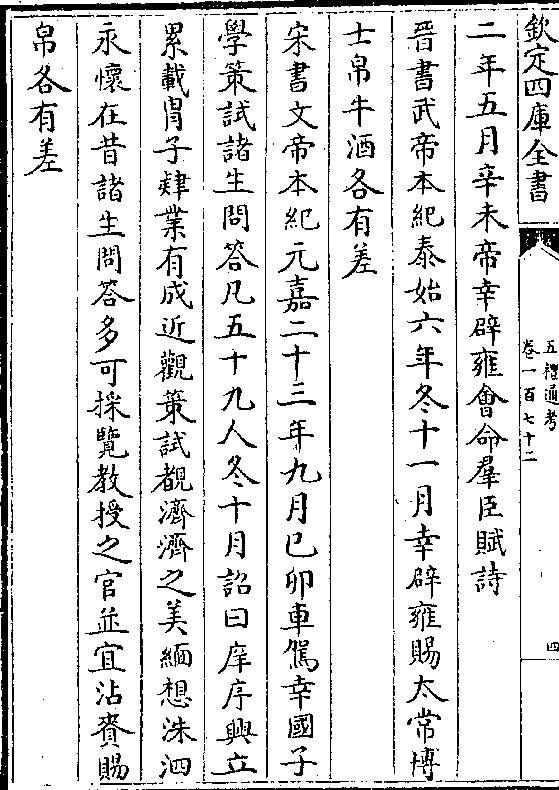 欽定四庫全書
五禮通考
卷一百七十二
四
二年五月辛未帝幸辟雍會命羣臣賦詩
晉書武帝本紀泰始六年冬十一月幸辟雍賜太常博
士帛牛酒各有差
宋書文帝本紀元嘉二十三年九月巳卯車駕幸國子
學策試諸生問答凡五十九人冬十月詔曰庠序興立
累載胄子肄業有成近觀策試覩濟濟之美緬想洙泗
永懷在昔諸生問答多可採覽教授之官並宜沾賚賜
帛各有差